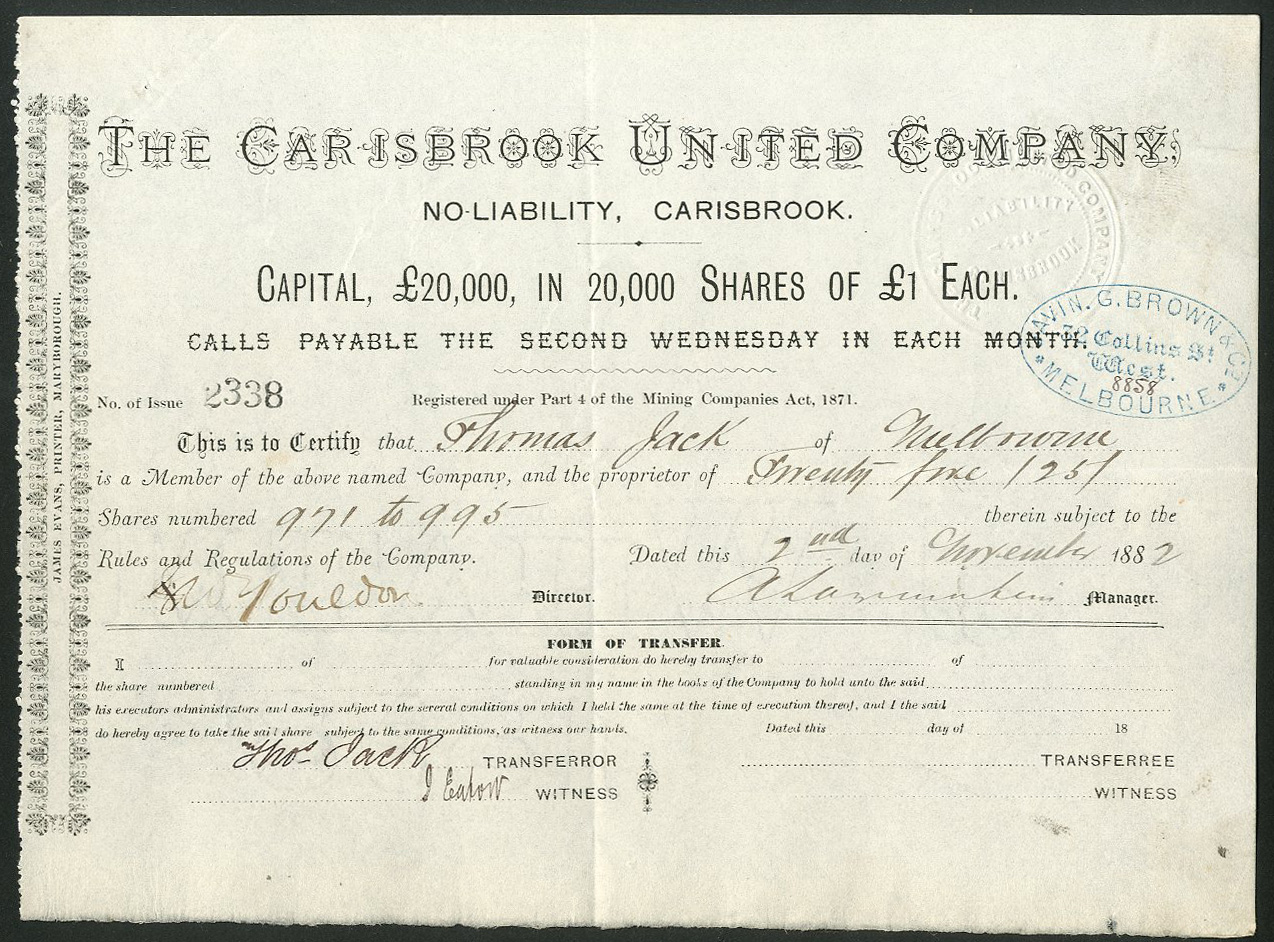 THE CARISBROOK UNITED COMPANY,
NO-LIABILITY, CARISBROOK.
CAPITAL, £20,000, IN 20,000 SHARES OF £1 EACH.
CALLS PAYABLE THE SECOND WEDNESDAY IN EACH MONTH.
AVIN. G. BROWN & Co
72 Collins St
West.
8858
* MELBOURNE *
COMPANY
LIABILITY
No. of Issue 2338 Registered under Part 4 of the Mining Companies Act, 1871.
This is to Certify that Thomas Jack of Melbourne
is a Member of the above named Company, and the proprietor of Twenty five /25/
Shares numbered 971 to 995 therein subject to the
Rules and Regulations of the Company. Dated this 2nd day of November 1882
Director. Manager.
FORM OF TRANSFER.
I of for valuable consideration do hereby transfer to of
the share numbered standing in my name in the books of the Company to hold unto the said
his executors administrators and assigns subject to the several conditions on which I held the same at the time of execution thereof, and I the said
do hereby agree to take the said share subject to the same conditions, as witness our hands. Dated this day of 18
Thos Jack TRANSFERROR TRANSFERREE
J Eatow WITNESS WITNESS
JAMES EVANS, PRINTER, MARYBOROUGH.